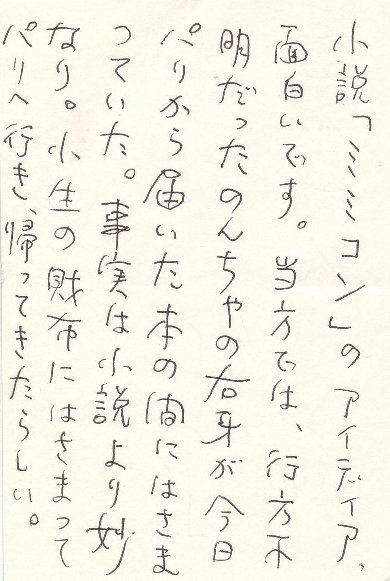 小説「ミミコン」のアイディア、
面白いです。当方では、行方不
明だったのんちゃの右牙が今日
パリから届いた本の間にはさま
っていた。事実は小説より妙
なり。小生の財布にはさまって
パリへ行き、帰ってきたらしい。